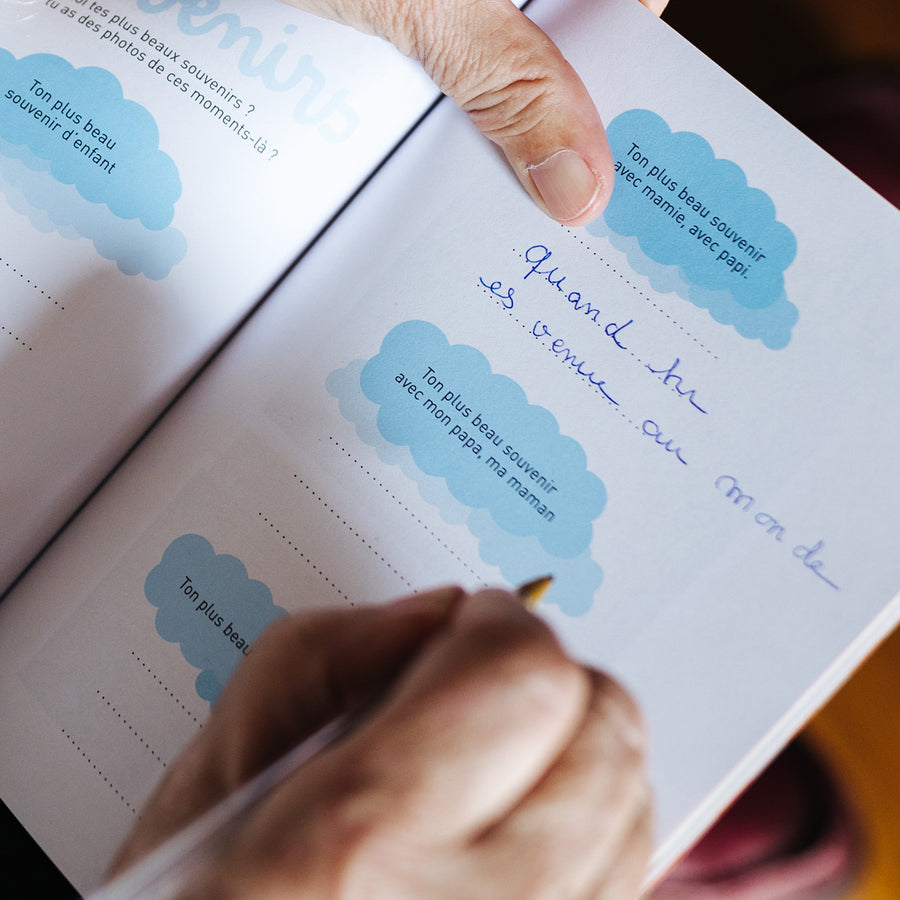 souvenirs
tes plus beaux souvenirs ?
Tu as des photos de ces moments-là ?
Ton plus beau
souvenir d'enfant
Ton plus beau souvenir
avec mamie, avec papi.
Quand tu
es venue au monde
Ton plus beau souvenir
avec mon papa, ma maman
Ton plus beau